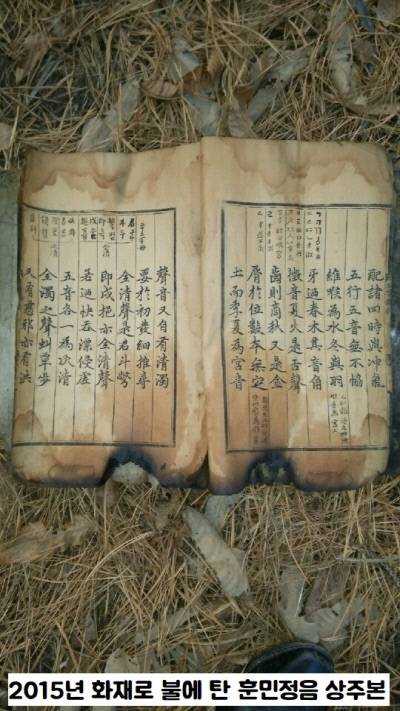 配諸四時與冲氣
五行五音無不恊
維喉為水冬與羽
牙迺春木其音角
徵音夏火是舌聲
齒則商秋又是金
脣於位數本無定
土而季夏為宮音
聲音又自有清濁
要於初發細推尋
全清聲是君斗彆
即戌挹亦全清聲
若迺快吞漂侵虛
五音各一為次清
全濁之聲虯覃步
又有慈邪亦有洪
2015년 화재로 불에 탄 훈민정음 상주본